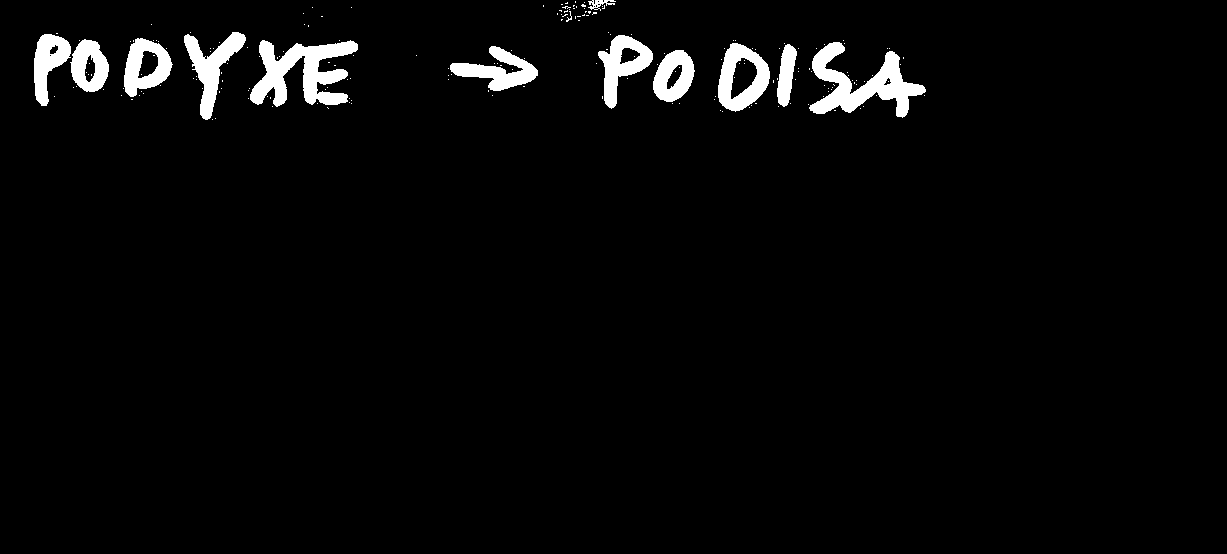 PODYXE → PODISA